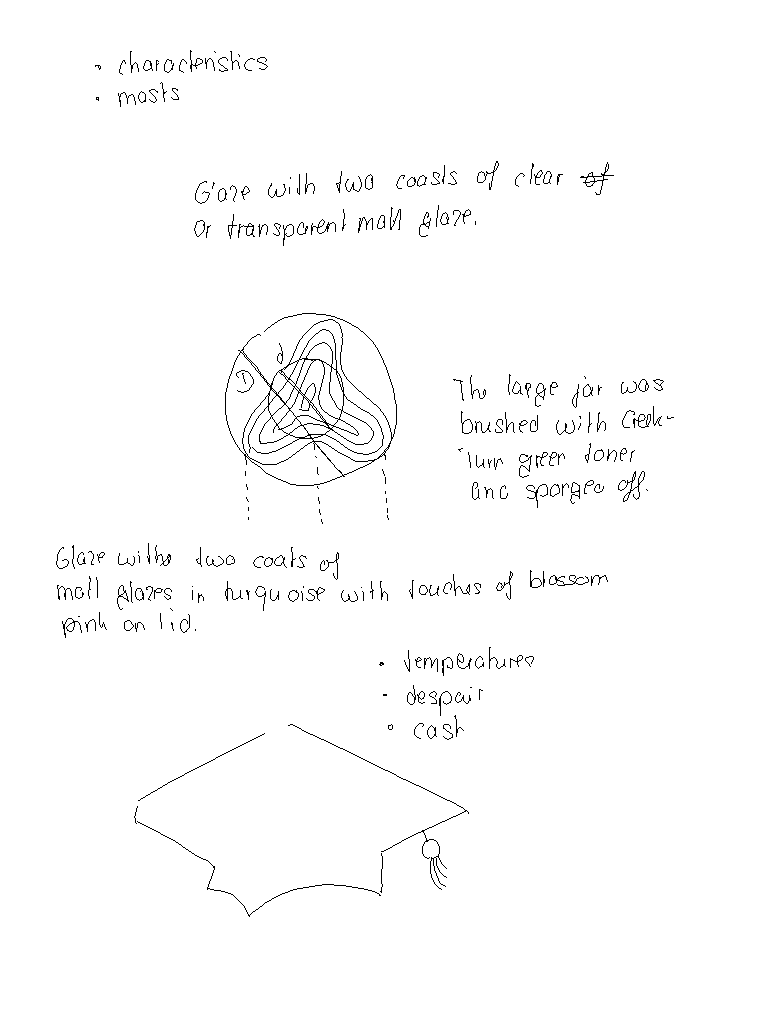 • characteristics
• masts
Glaze with two coasts of clear of
or transparent matt glaze.
d
D
The large jar was
brushed with Creek-
Turn green toner
and sponged off.
Glaze withs two coats of
matt glazes in turquoise with touches of blossom
pink on lid.
• temperatures
• despair
• cash